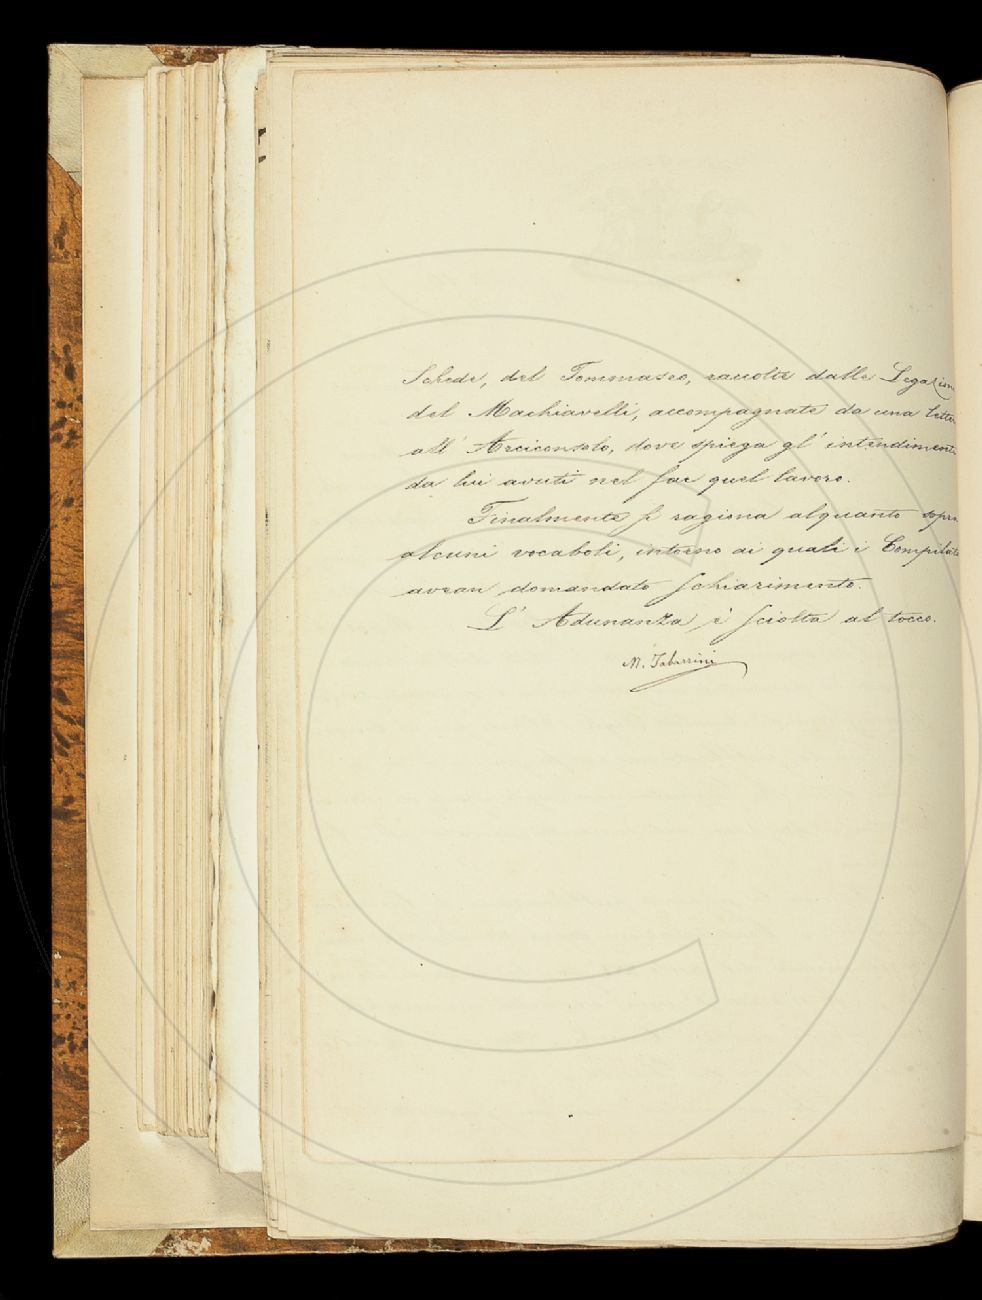 Schede, del Tommaseo, raccolte dalle Legazion
del Machiavelli, accompagnate da una lette
all' Arciconsolo, dove spiega gl' intendiment
da lui avuti nel far quel lavoro.
Finalmente si ragiona alquanto sopra
alcuni vocaboli, intorno ai quali i Compilato
avean domandato schiarimento.
L' Adunanza è sciolta al tocco.
M. Tabarrini